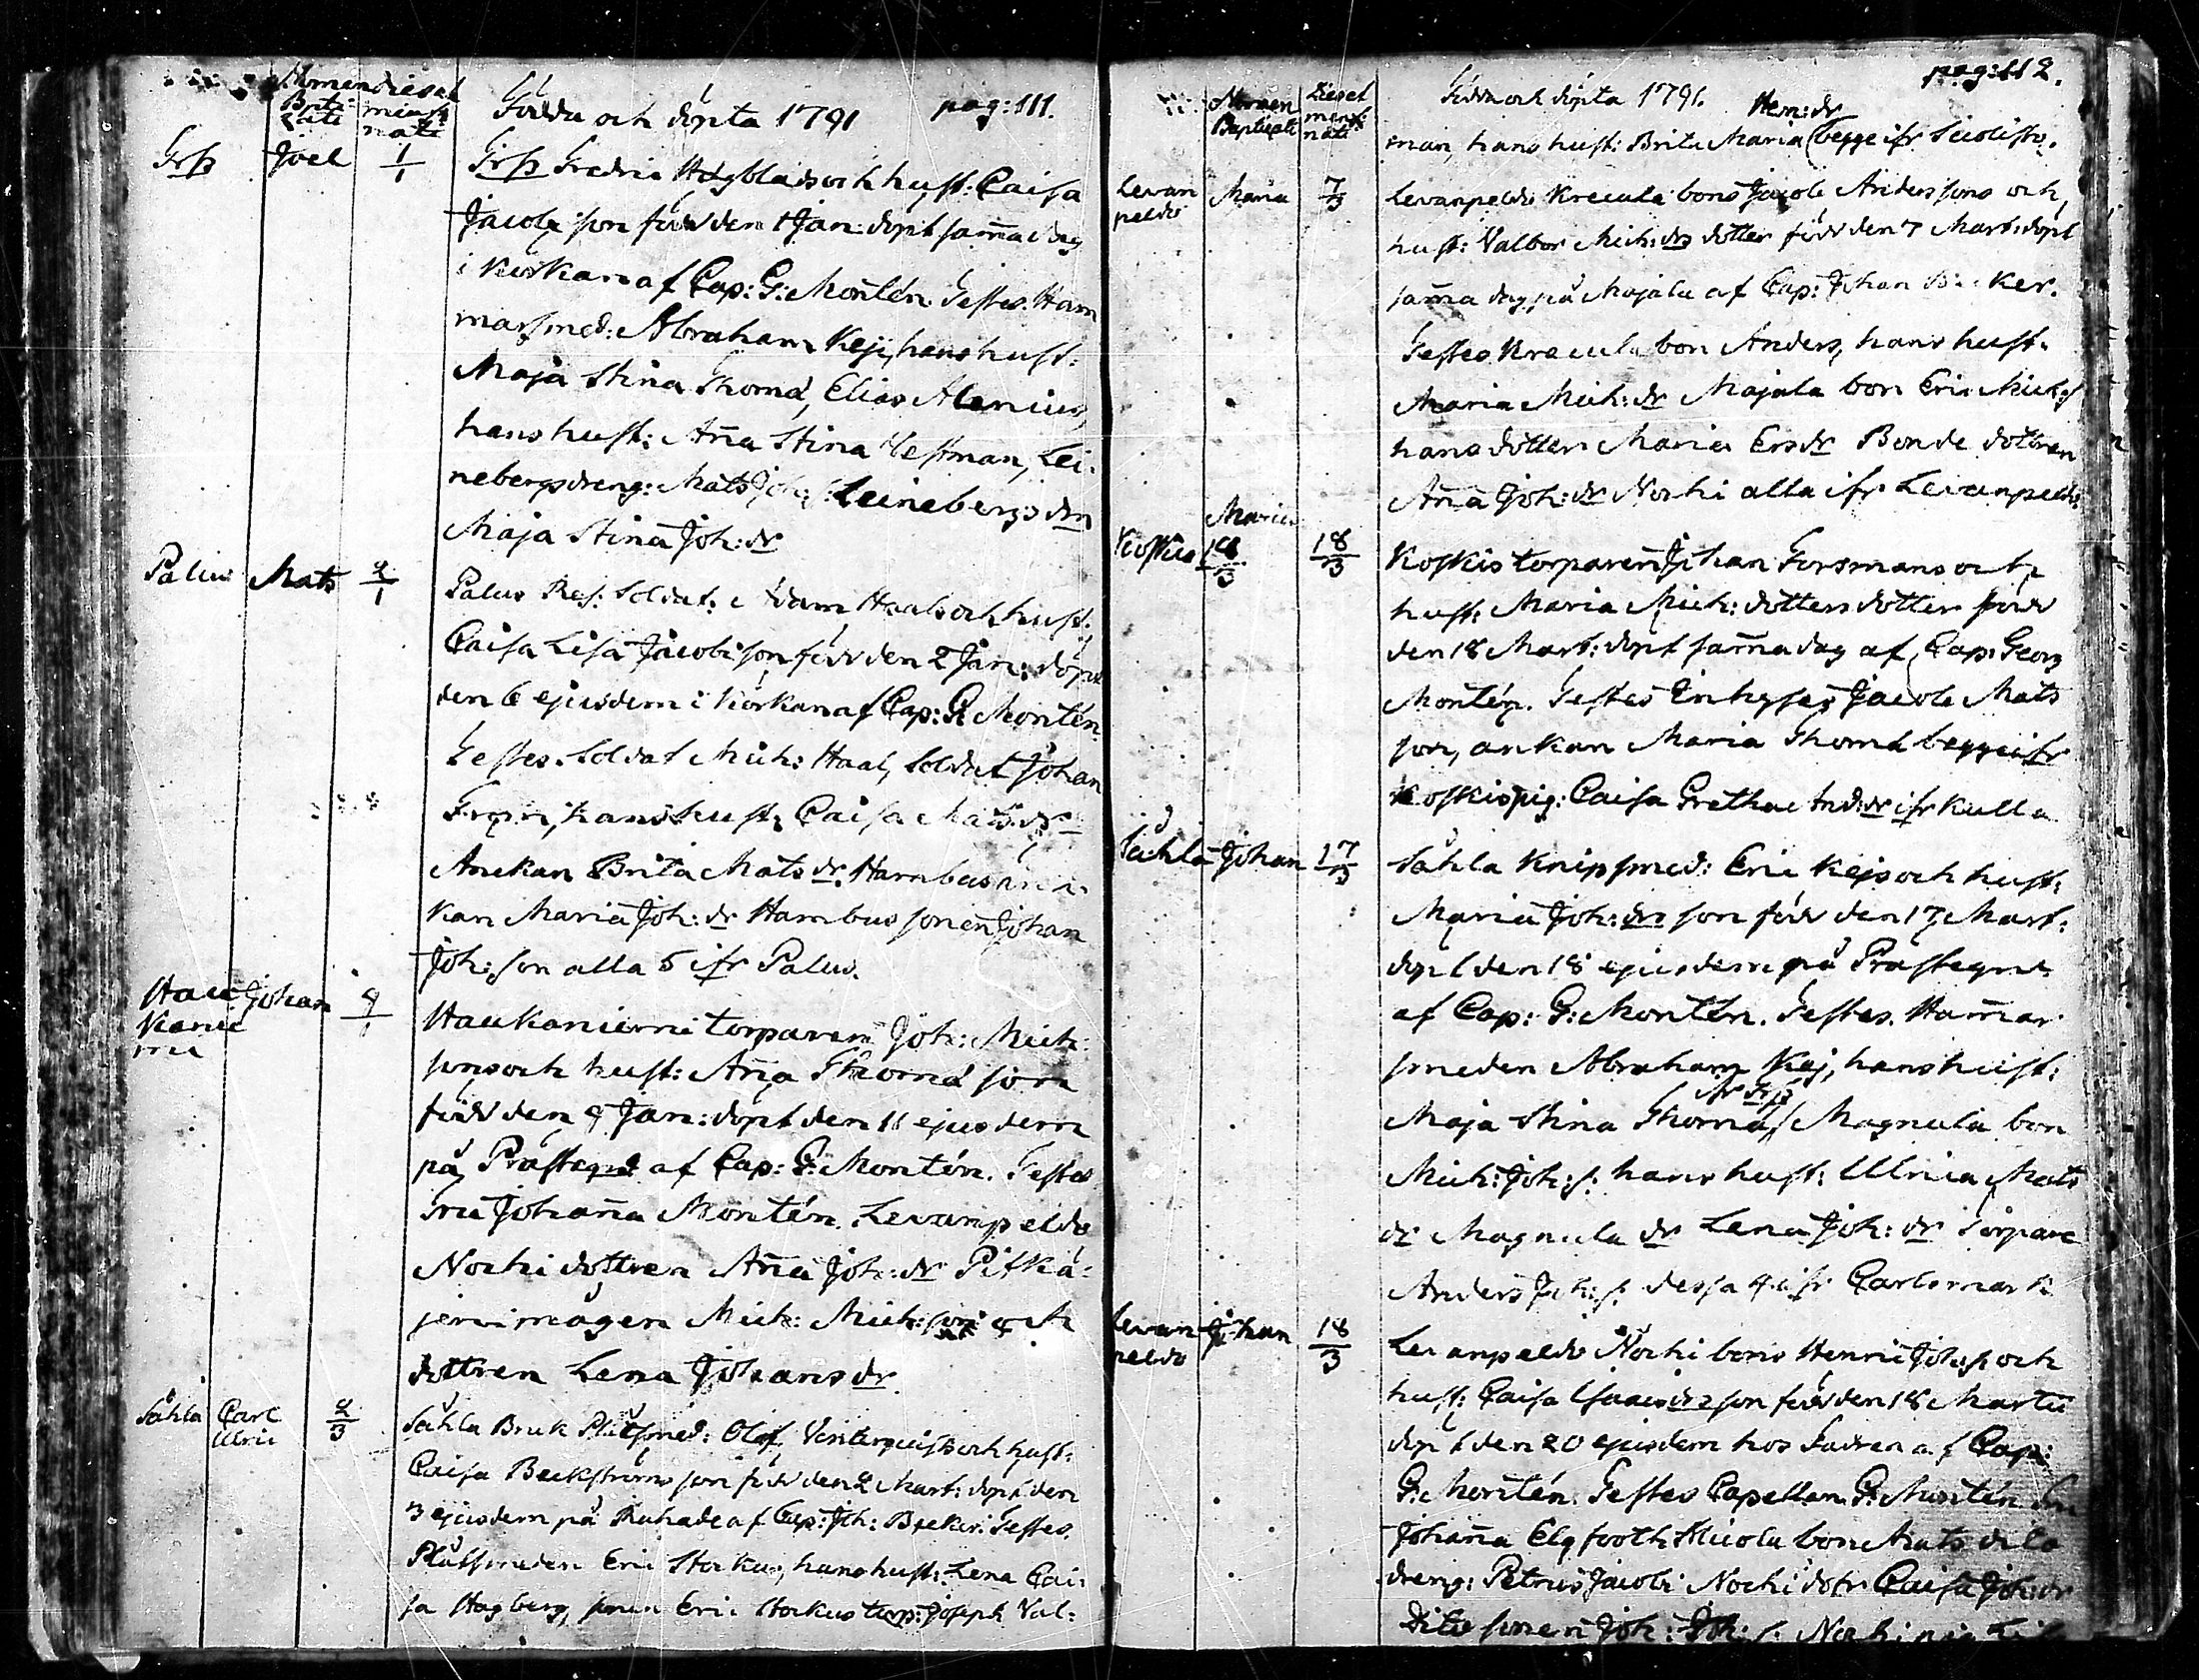 Nomen dies et
Bpti- mens:
zati nati
Födde och döpta 1791 pag: 111.
Joel 1/1 Fredric Högblads och hust: Caisa
Jacobs son född den 1 Jan: döpt sam̄a dag
i Körkan af Cap: G: Montén. Testes. Ham
marsmed: Abraham Keij, hans hust:
Maja Stina Thomæ, Elias Alenius,
hans hust: Añna Stina Westman, Lei-
nebergs dreng: Mats Joh: s: Leinebergs drn
Maja Stina Joh: dr
Palus Mats 2/1 Palus Res: Soldat: Adam Haals och hust:
Caisa Lisa Jacobs son född den 2 Jan: döpt
den 6 ejusdem i Körkan af Cap: G: Montén.
Testes. Soldat Mich: Haal, Soldat Johan
hans hust: Caisa Mats dr
Enekan Brita Mats dr. Hambus än-
kan Maria Joh: dr Hambus sonen Johan
Joh: son alla 5 ifr Palus.
Hau Johan 9/1
kanie
mi
Haukaniemi torparen Joh: Mich:
sons och hust: Añna Thomæ son
född den 9 Jan: döpt den 11 ejusdem
på Prästegrd af Cap: G: Montén. Testes
Fru Johaña Montén. Levanpeldo
Nochi dottren Aña Joh: dr Pitkä-
jervi mågen Mich: Mich: son och
dottren Lena Johans dr
Såhla Carl 2/3
Ulric
Såhla Bruk Plåtsmed: Olof och hust:
Caisa Beckströms son född den 2 Mart: döpt den
3 ejusdem på af Cap: Joh: Becker. Testes.
Plåtsmeden Eric Stockus, hans hust: Lena Cai-
sa Hagberg, sonen Eric Stockus torp: Joseph Val-
pag: 112.
Nomen Dies et
Baptizati mens:
nati
Födde och döpta 1791. Hem: dr
man, hans hust: Brita Maria begge ifr
Levan Maria 7/3
peldo
Levanpeldo Krecula bons Jacob Anderssons och
hust: Valbor Mich: drs dotter född den 7 Mart: döpt
sam̄a dag på Majala af Cap: Johan Becker.
Testes Kreculabon Anders, hans hust:
Maria Mich: dr Majala bon Eric Mich: s
hans dotter Maria Ersdr Bonde dottren
Aña Joh: dr Nochi alla ifr Levanpeldo.
Maria
Koskis 18/3 18/3
Koskis torparen Johan Forsmans och
hust: Maria Mich: dotters dotter född
den 18 Mart: döpt sam̄a dag af Cap: Georg
Montén. Testes Inhyses Jacob Mats
son, änkan Maria Thomæ begge ifr
Koskis pig: Caisa Gretha And: dr ifr Kulla
Såhla Johan 17/3
Såhla Knipsmed: Eric Kejs och hust:
Maria Joh: drs son född den 17 Mart:
döpt den 18 ejusdem på Prästegrd
af Cap: G: Montén. Testes. Ham̄ar
smeden Abraham Kej, hans hust:
Maja Stina Thomæ, Magnula bon
Mich: Joh: s: hans hust: Ulrica Mats
dr Magnula dr Lena Joh: dr torpare
Anders Joh: s: dessa 4 ifr Carlsmark
Levan Johan 18/3
peldo
Levanpeldo Nochi bons Henric Joh: s och
hust: Caisa Isaacs drs son född den 18 Martii
döpt den 20 ejusdem hos Fadren af Cap:
G: Montén. Testes Capellan G: Montén Fru
Johaña Elgfooth bon Mats dito
dreng: Petrus Jacobi Nochi dotr Caisa Joh: dr
Dito sonen Joh: Joh: s: Nochi